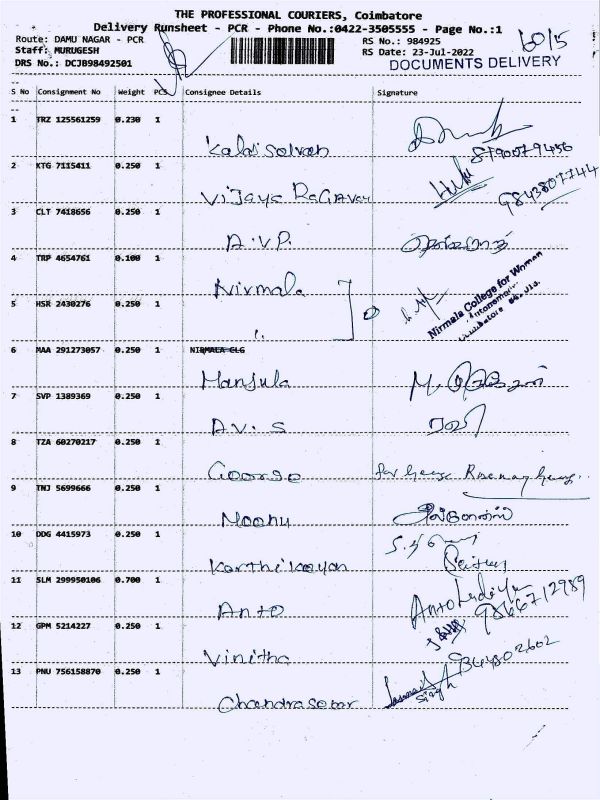 THE PROFESSIONAL COURIERS, Coimbatore
Delivery Runsheet - PCR - Phone No.:0422-3505555 - Page No.:1
Route: DAMU NAGAR - PCR
RS No.: 984925
Staff: MURUGESH
RS Date: 23-Jul-2022
DRS No.: DCJB98492501
DOCUMENTS DELIVERY
S No Consignment No Weight PCS Consignee Details Signature
1 TRZ 125561259 0.230 1
Kalaiselvan
8790079456
2 KTG 7115411 0.250 1
Vijaya Ragavan
9843807744
3 CLT 7418656 0.250 1
A.V.P.
4 TRP 4654761 0.100 1
Nirmala
Nirmala College for Women
5 HSR 2430276 0.250 1
"
6 MAA 291273057 0.250 1 NIRMALA CLG
Manjula
7 SVP 1389369 0.250 1
A.V. S
8 TZA 60270217 0.250 1
George
for George
9 TNJ 5699666 0.250 1
10 DDG 4415973 0.250 1
Karthikeyan
11 SLM 299950106 0.700 1
Anto
9866712989
12 GPM 5214227 0.250 1
Vinitha
934802602
13 PNU 756158870 0.250 1
Chandrasekar
Singh